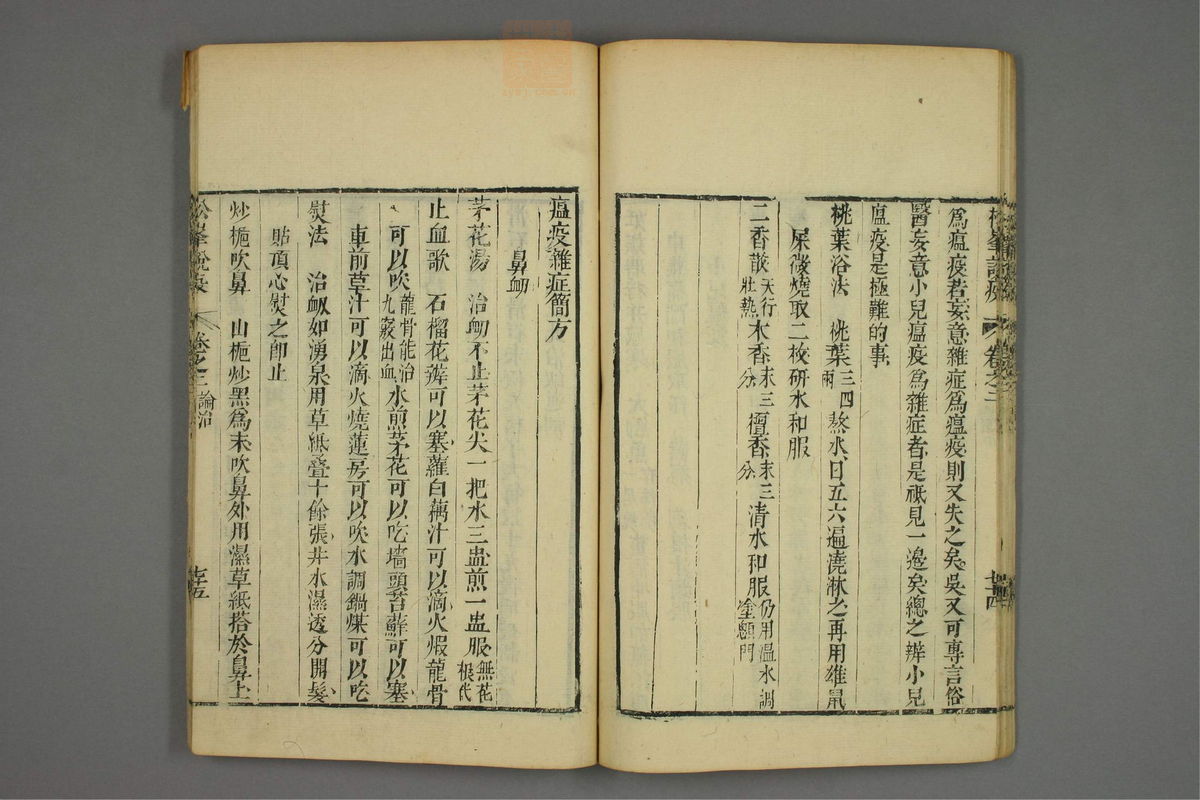 松峯說疫 卷之三 廿四
爲瘟疫者妄意雜症爲瘟疫則又失之矣吳又可專言俗
醫妄意小兒瘟疫爲雜症者是祇見一邊矣總之辨小兒
瘟疫是極難的事
桃葉浴法 桃葉三四兩熬水日五六遍澆淋之再用雄鼠
屎微燒取二枚研水和服
二香散天行壯熱 木香末三分 檀香末三分 清水和服仍用溫水調塗顖門
瘟疫雜症簡方
鼻衂
茅花湯 治衂不止茅花尖一把水三盅煎一盅服無花根代
止血歌 石榴花瓣可以塞蘿白藕汁可以滴火煆龍骨
可以吹龍骨能治九竅出血水煎茅花可以吃墻頭苔蘚可以塞
車前草汁可以滴火燒蓮房可以吹水調鍋煤可以吃
熨法 治衂如湧泉用草紙疊十餘張井水濕透分開髮
貼頂心熨之卽止
炒梔吹鼻 山梔炒黑爲末吹鼻外用濕草紙搭於鼻上
松峯說疫 卷之三 論治 廿五